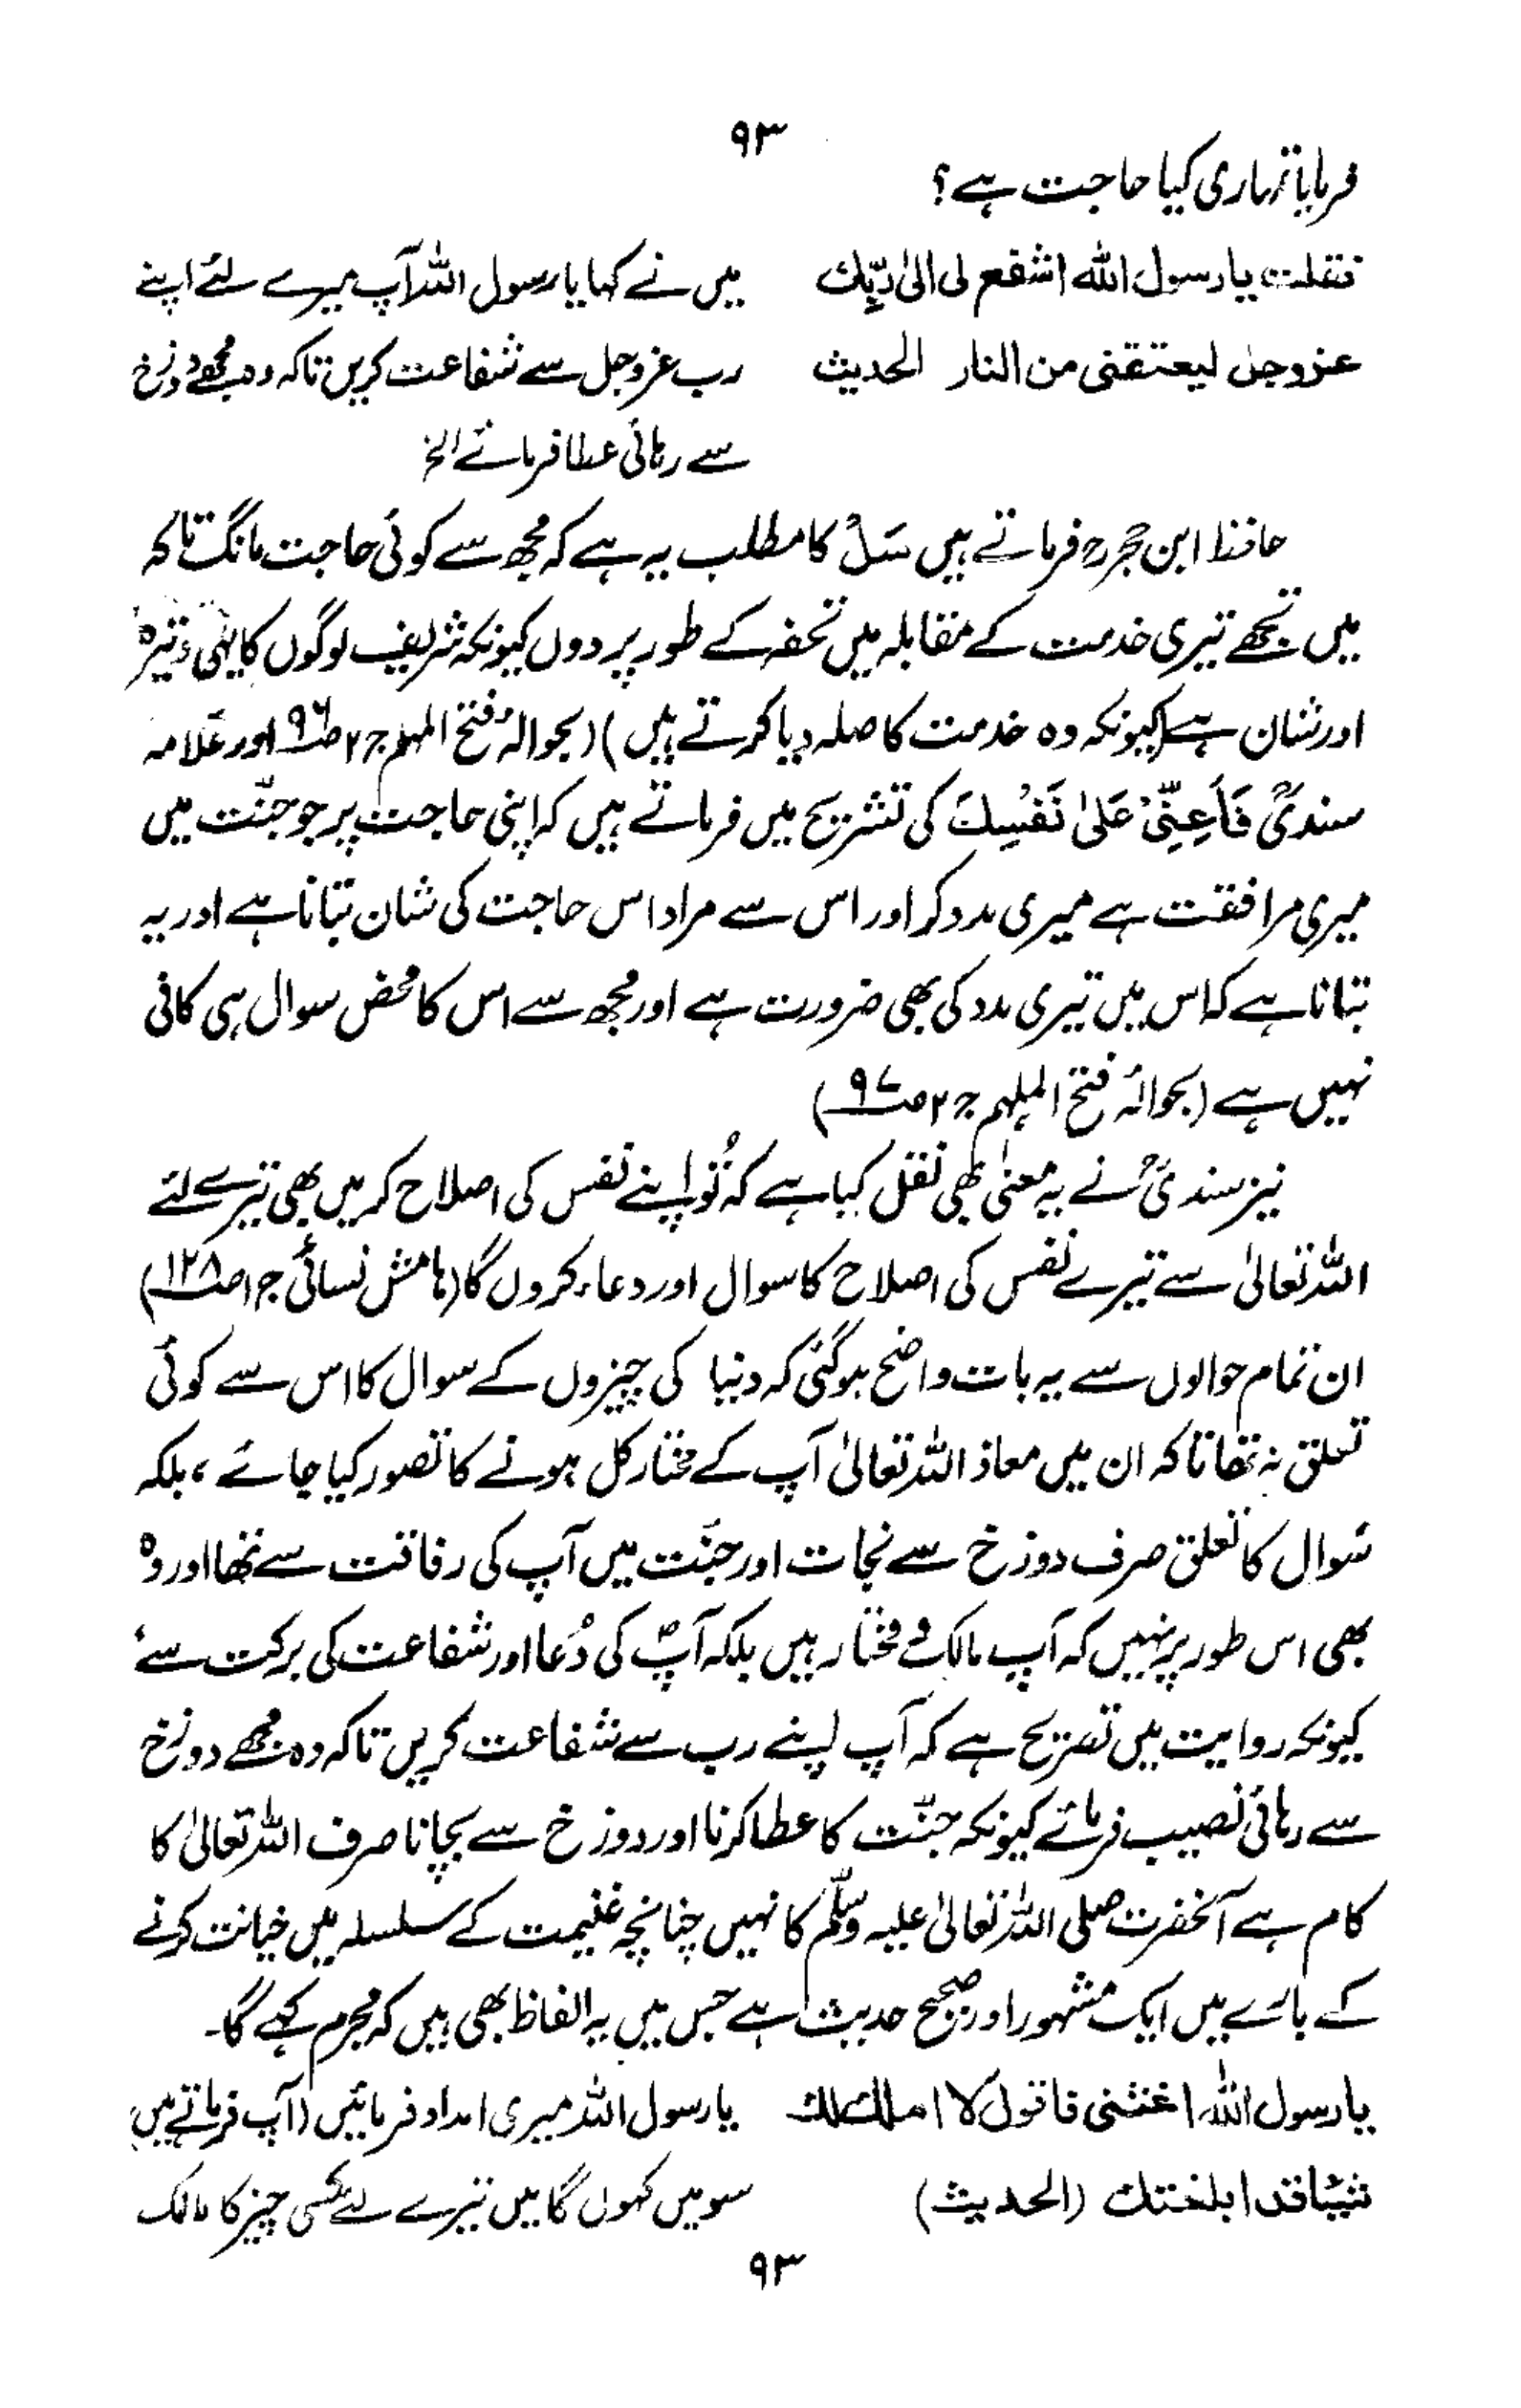 ۹۳
فرمایا تمہاری کیا حاجت ہے؟
فقلت یا رسول اللہ اشفع لی الیٰ ربِّك میں نے کہا یا رسول اللہ آپ میرے لئے اپنے
عزوجل لیعتقنی من النار الحدیث رب عزوجل سے شفاعت کریں تاکہ وہ مجھے دوزخ
سے رہائی عطا فرمائے الخ
حافظ ابن حجرؒ فرماتے ہیں سَلْ کا مطلب یہ ہے کہ مجھ سے کوئی حاجت مانگ تاکہ
میں تجھے تیری خدمت کے مقابلہ میں تحفہ کے طور پر دوں کیونکہ شریف لوگوں کا یہی وتیرہ
اور شان ہے (کیونکہ وہ خدمت کا صلہ دیا کرتے ہیں) (بحوالہ فتح الملہم ج۲ ص۹۶ اور علامہ
سندیؒ فَأَعِنِّیْ عَلیٰ نَفْسِكَ کی تشریح میں فرماتے ہیں کہ اپنی حاجت پر جو جنّت میں
میری مرافقت ہے میری مدد کر اور اس سے مراد اس حاجت کی شان بتانا ہے اور یہ
بتانا ہے کہ اس میں تیری مدد کی بھی ضرورت ہے اور مجھ سے اس کا محض سوال ہی کافی
نہیں ہے (بحوالہ فتح الملہم ج۲ ص۹۷)
نیز سندیؒ نے یہ معنیٰ بھی نقل کیا ہے کہ تُو اپنے نفس کی اصلاح کر میں بھی تیرے لئے
اللہ تعالیٰ سے تیرے نفس کی اصلاح کا سوال اور دعاء کروں گا (ہامش نسائی ج۱ ص۱۲۸)
ان تمام حوالوں سے یہ بات واضح ہو گئی کہ دنیا کی چیزوں کے سوال کا اس سے کوئی
تعلق نہ تھا تاکہ ان میں معاذ اللہ تعالیٰ آپ کے مختار کل ہونے کا تصور کیا جائے، بلکہ
سوال کا تعلق صرف دوزخ سے نجات اور جنّت میں آپ کی رفاقت سے تھا اور وہ
بھی اس طور پر نہیں کہ آپ مالک و مختار ہیں بلکہ آپؐ کی دُعا اور شفاعت کی برکت سے
کیونکہ روایت میں تصریح ہے کہ آپ اپنے رب سے شفاعت کریں تاکہ وہ مجھے دوزخ
سے رہائی نصیب فرمائے کیونکہ جنّت کا عطا کرنا اور دوزخ سے بچانا صرف اللہ تعالیٰ کا
کام ہے آنحضرت صلی اللہ تعالیٰ علیہ وسلّم کا نہیں چنانچہ غنیمت کے سلسلہ میں خیانت کرنے
کے بارے میں ایک مشہور اور صحیح حدیث ہے جس میں یہ الفاظ بھی ہیں کہ مجرم کہے گا۔
یا رسول اللہ اغثنی فاقول لا املك لك یا رسول اللہ میری امداد فرمائیں (آپ فرماتے ہیں
شیئا قد ابلغتك (الحدیث) سو میں کہوں گا میں تیرے لئے کسی چیز کا مالک
۹۳